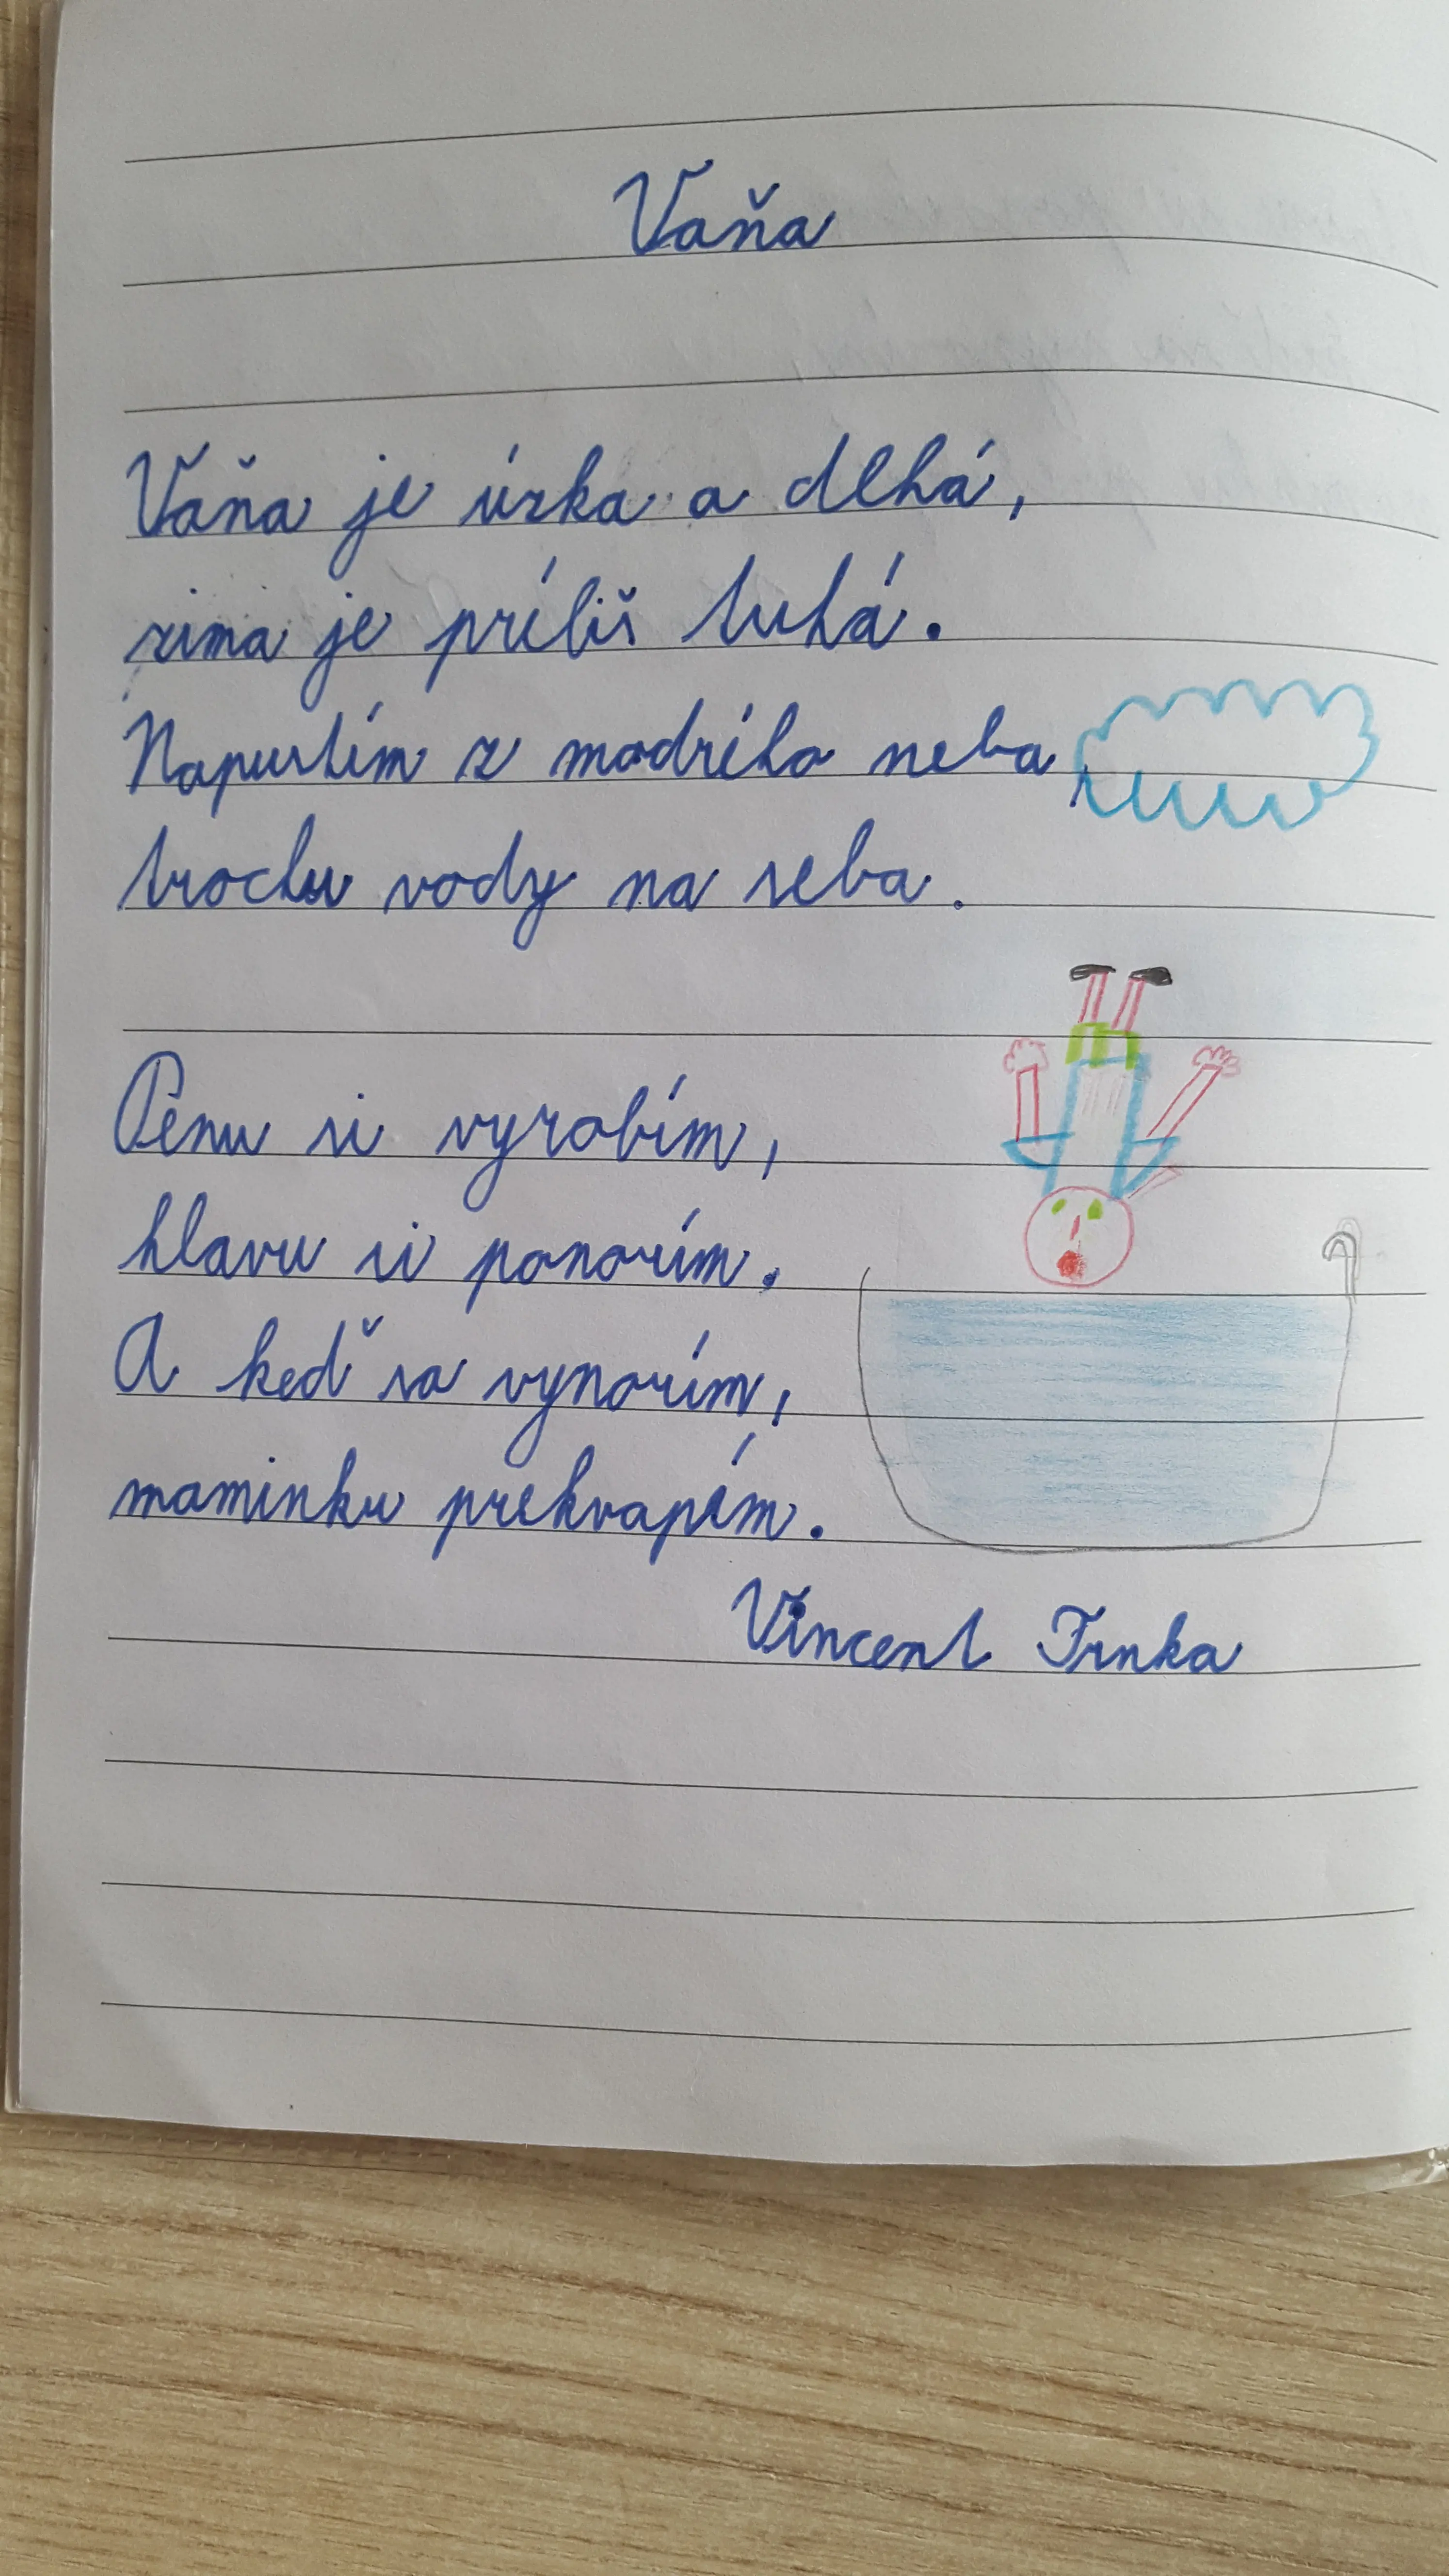 Vaňa
Vaňa je úzka a dlhá,
zima je príliš tuhá.
Napustím z modrého neba,
trochu vody na seba.
Penu si vyrobím,
hlavu si ponorím.
A keď sa vynorím,
maminku prekvapím.
Vincent Trnka